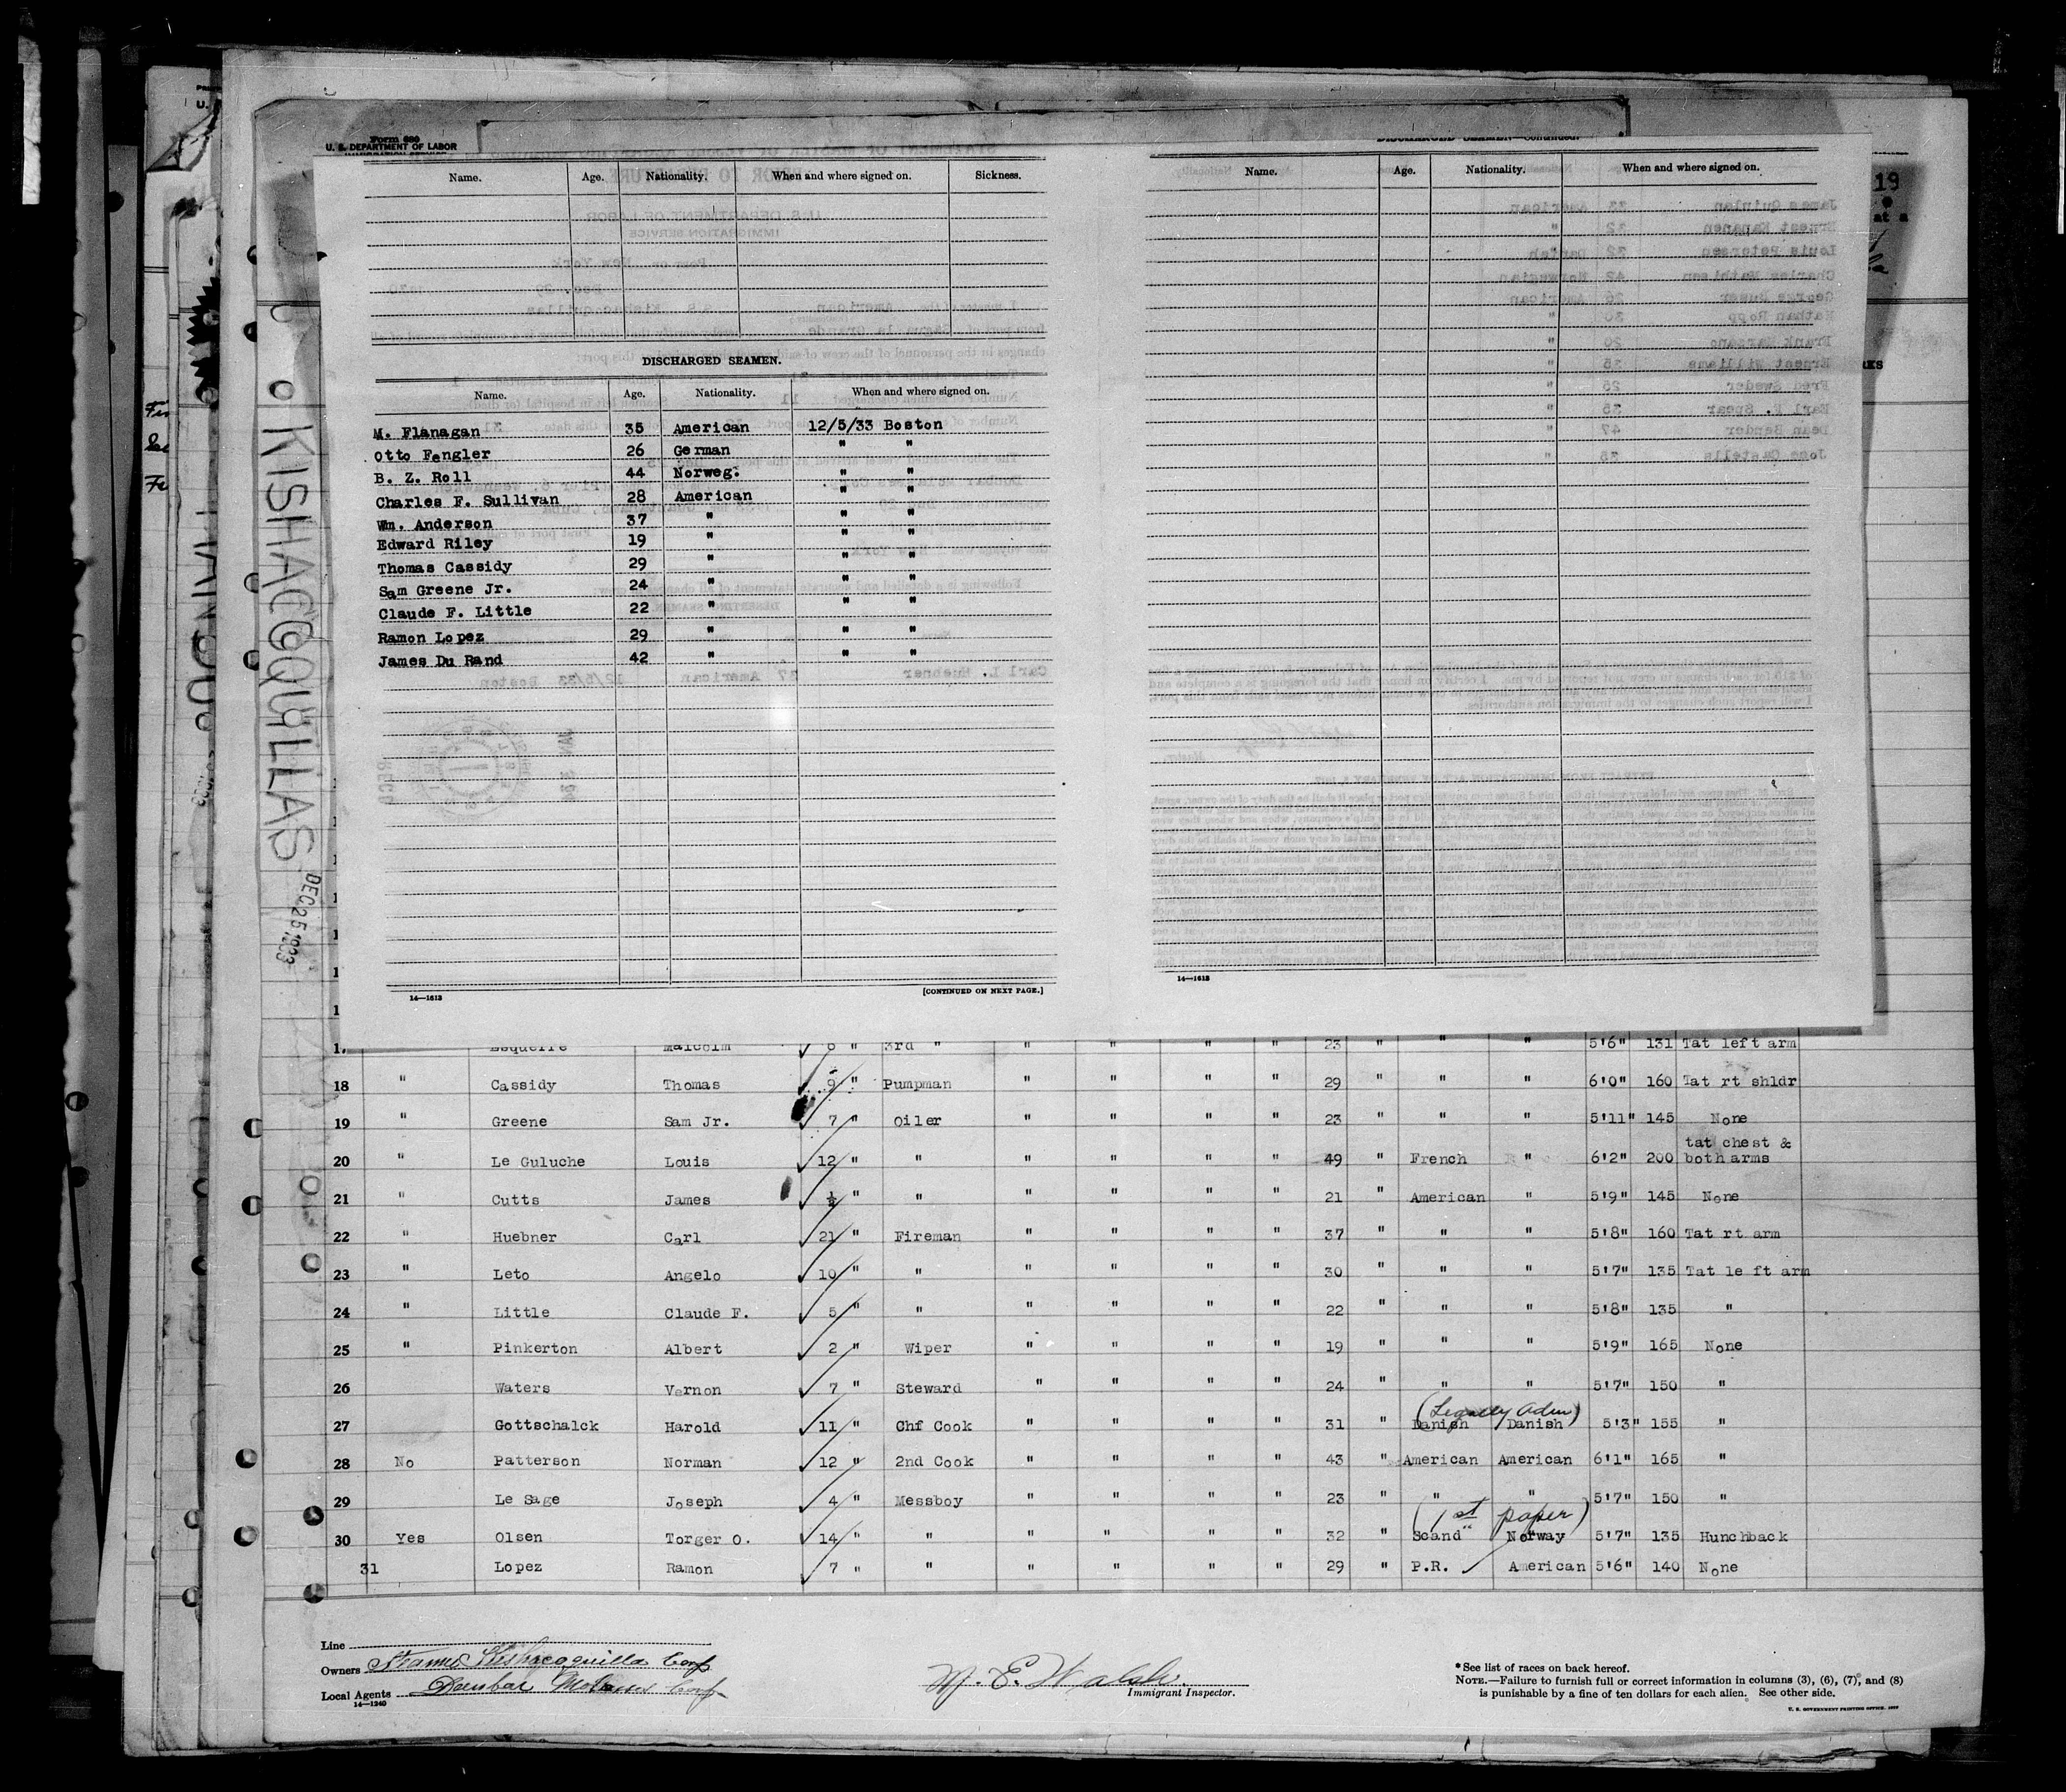 Form 689
U. S. DEPARTMENT OF LABOR
DISCHARGED SEAMEN—Continued.
Name. Age. Nationality. When and where signed on. Sickness.
Name. Age. Nationality. When and where signed on.
19
at a
KISHACOQUILLAS
DEC 25 1933
DISCHARGED SEAMEN.
Name. Age. Nationality. When and where signed on.
M. Flanagan 35 American 12/5/33 Boston
Otto Fengler 26 German " "
B. Z. Roll 44 Norweg. " "
Charles F. Sullivan 28 American " "
Wm. Anderson 37 " " "
Edward Riley 19 " " "
Thomas Cassidy 29 " " "
Sam Greene Jr. 24 " " "
Claude F. Little 22 " " "
Ramon Lopez 29 " " "
James Du Rand 42 " " "
14—1613
[CONTINUED ON NEXT PAGE.]
14—1613
Esquerre Malcolm 6 " 3rd " " " " " 23 " " " 5'6" 131 Tat left arm
18 " Cassidy Thomas 9 " Pumpman " " " " 29 " " " 6'0" 160 Tat rt shldr
19 " Greene Sam Jr. 7 " Oiler " " " " 23 " " " 5'11" 145 None
20 " Le Guluche Louis 12 " " " " " " 49 " French " 6'2" 200 tat chest & both arms
21 " Cutts James ½ " " " " " " 21 " American " 5'9" 145 None
22 " Huebner Carl 21 " Fireman " " " " 37 " " " 5'8" 160 Tat rt arm
23 " Leto Angelo 10 " " " " " " 30 " " " 5'7" 135 Tat left arm
24 " Little Claude F. 5 " " " " " " 22 " " " 5'8" 135 "
25 " Pinkerton Albert 2 " Wiper " " " " 19 " " " 5'9" 165 None
26 Waters Vernon 7 " Steward " " " " 24 " " " 5'7" 150 "
(Legally Adm)
27 Gottschalck Harold 11 " Chf Cook " " " " 31 " Danish Danish 5'3" 155 "
28 No Patterson Norman 12 " 2nd Cook " " " " 43 " American American 6'1" 165 "
29 Le Sage Joseph 4 " Messboy " " " " 23 " " " 5'7" 150 "
(1st paper)
30 Yes Olsen Torger O. 14 " " " " " " 32 " Scand Norway 5'7" 135 Hunchback
31 Lopez Ramon 7 " " " " " " 29 " P.R. American 5'6" 140 None
Line
Owners Steamer Kishacoquilla Corp
Local Agents Dunbar Molasses Corp
14—1240
M. E. Walsh.
Immigrant Inspector.
* See list of races on back hereof.
NOTE.—Failure to furnish full or correct information in columns (3), (6), (7), and (8)
is punishable by a fine of ten dollars for each alien. See other side.
U. S. GOVERNMENT PRINTING OFFICE